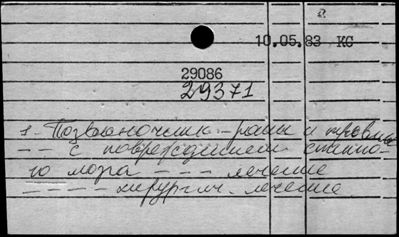 10.05.83 КС
29086
29371
1. Позвоночник - раны и травмы
- - с повреждением спинно-
го мозга - - - лечение
- - - - хирургич. лечение